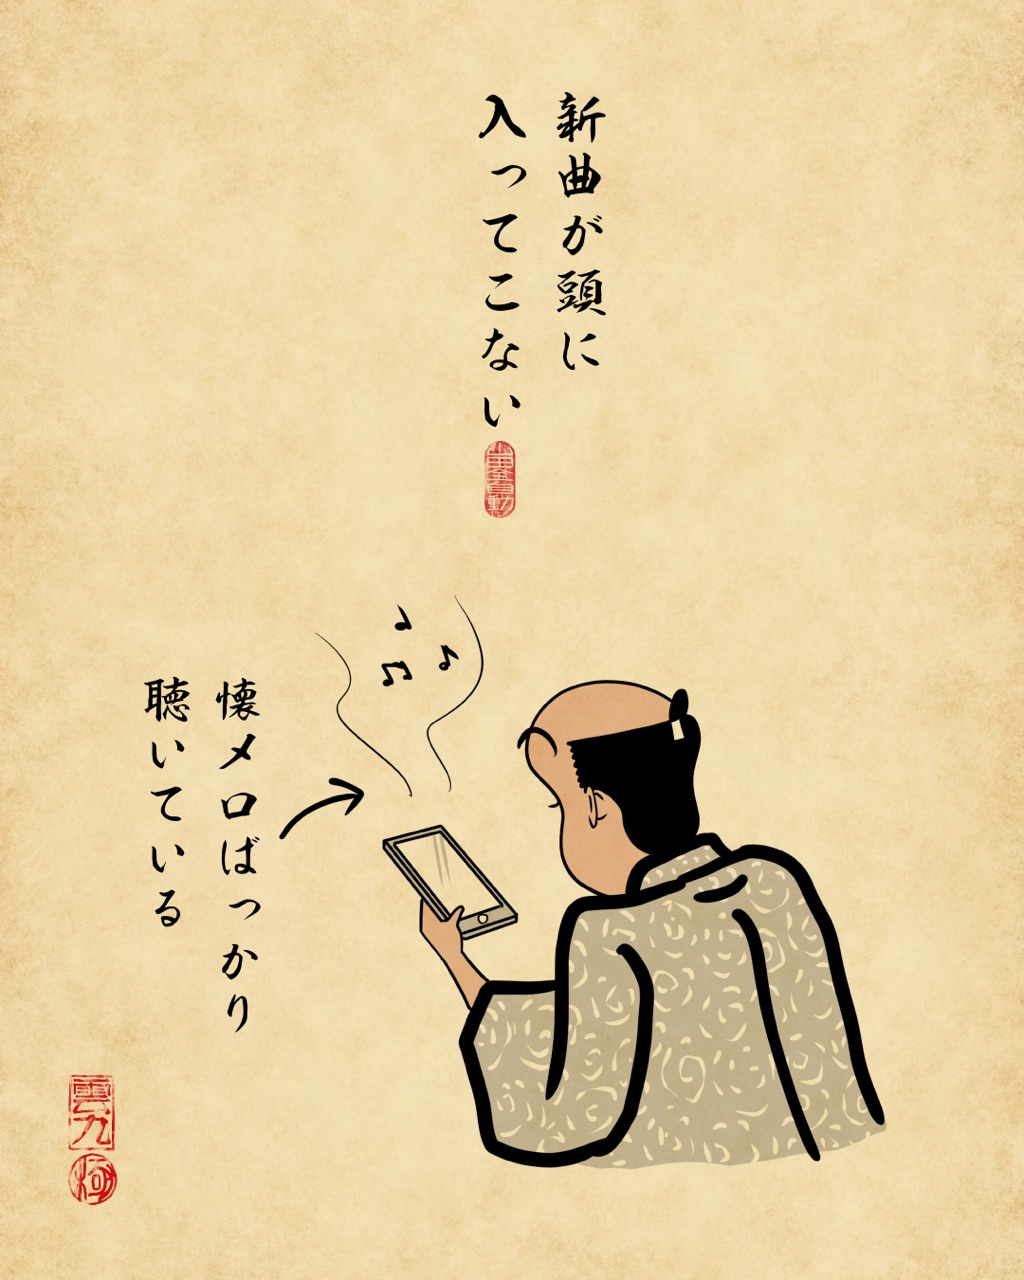 新曲が頭に
入ってこない
懐メロばっかり
聴いている